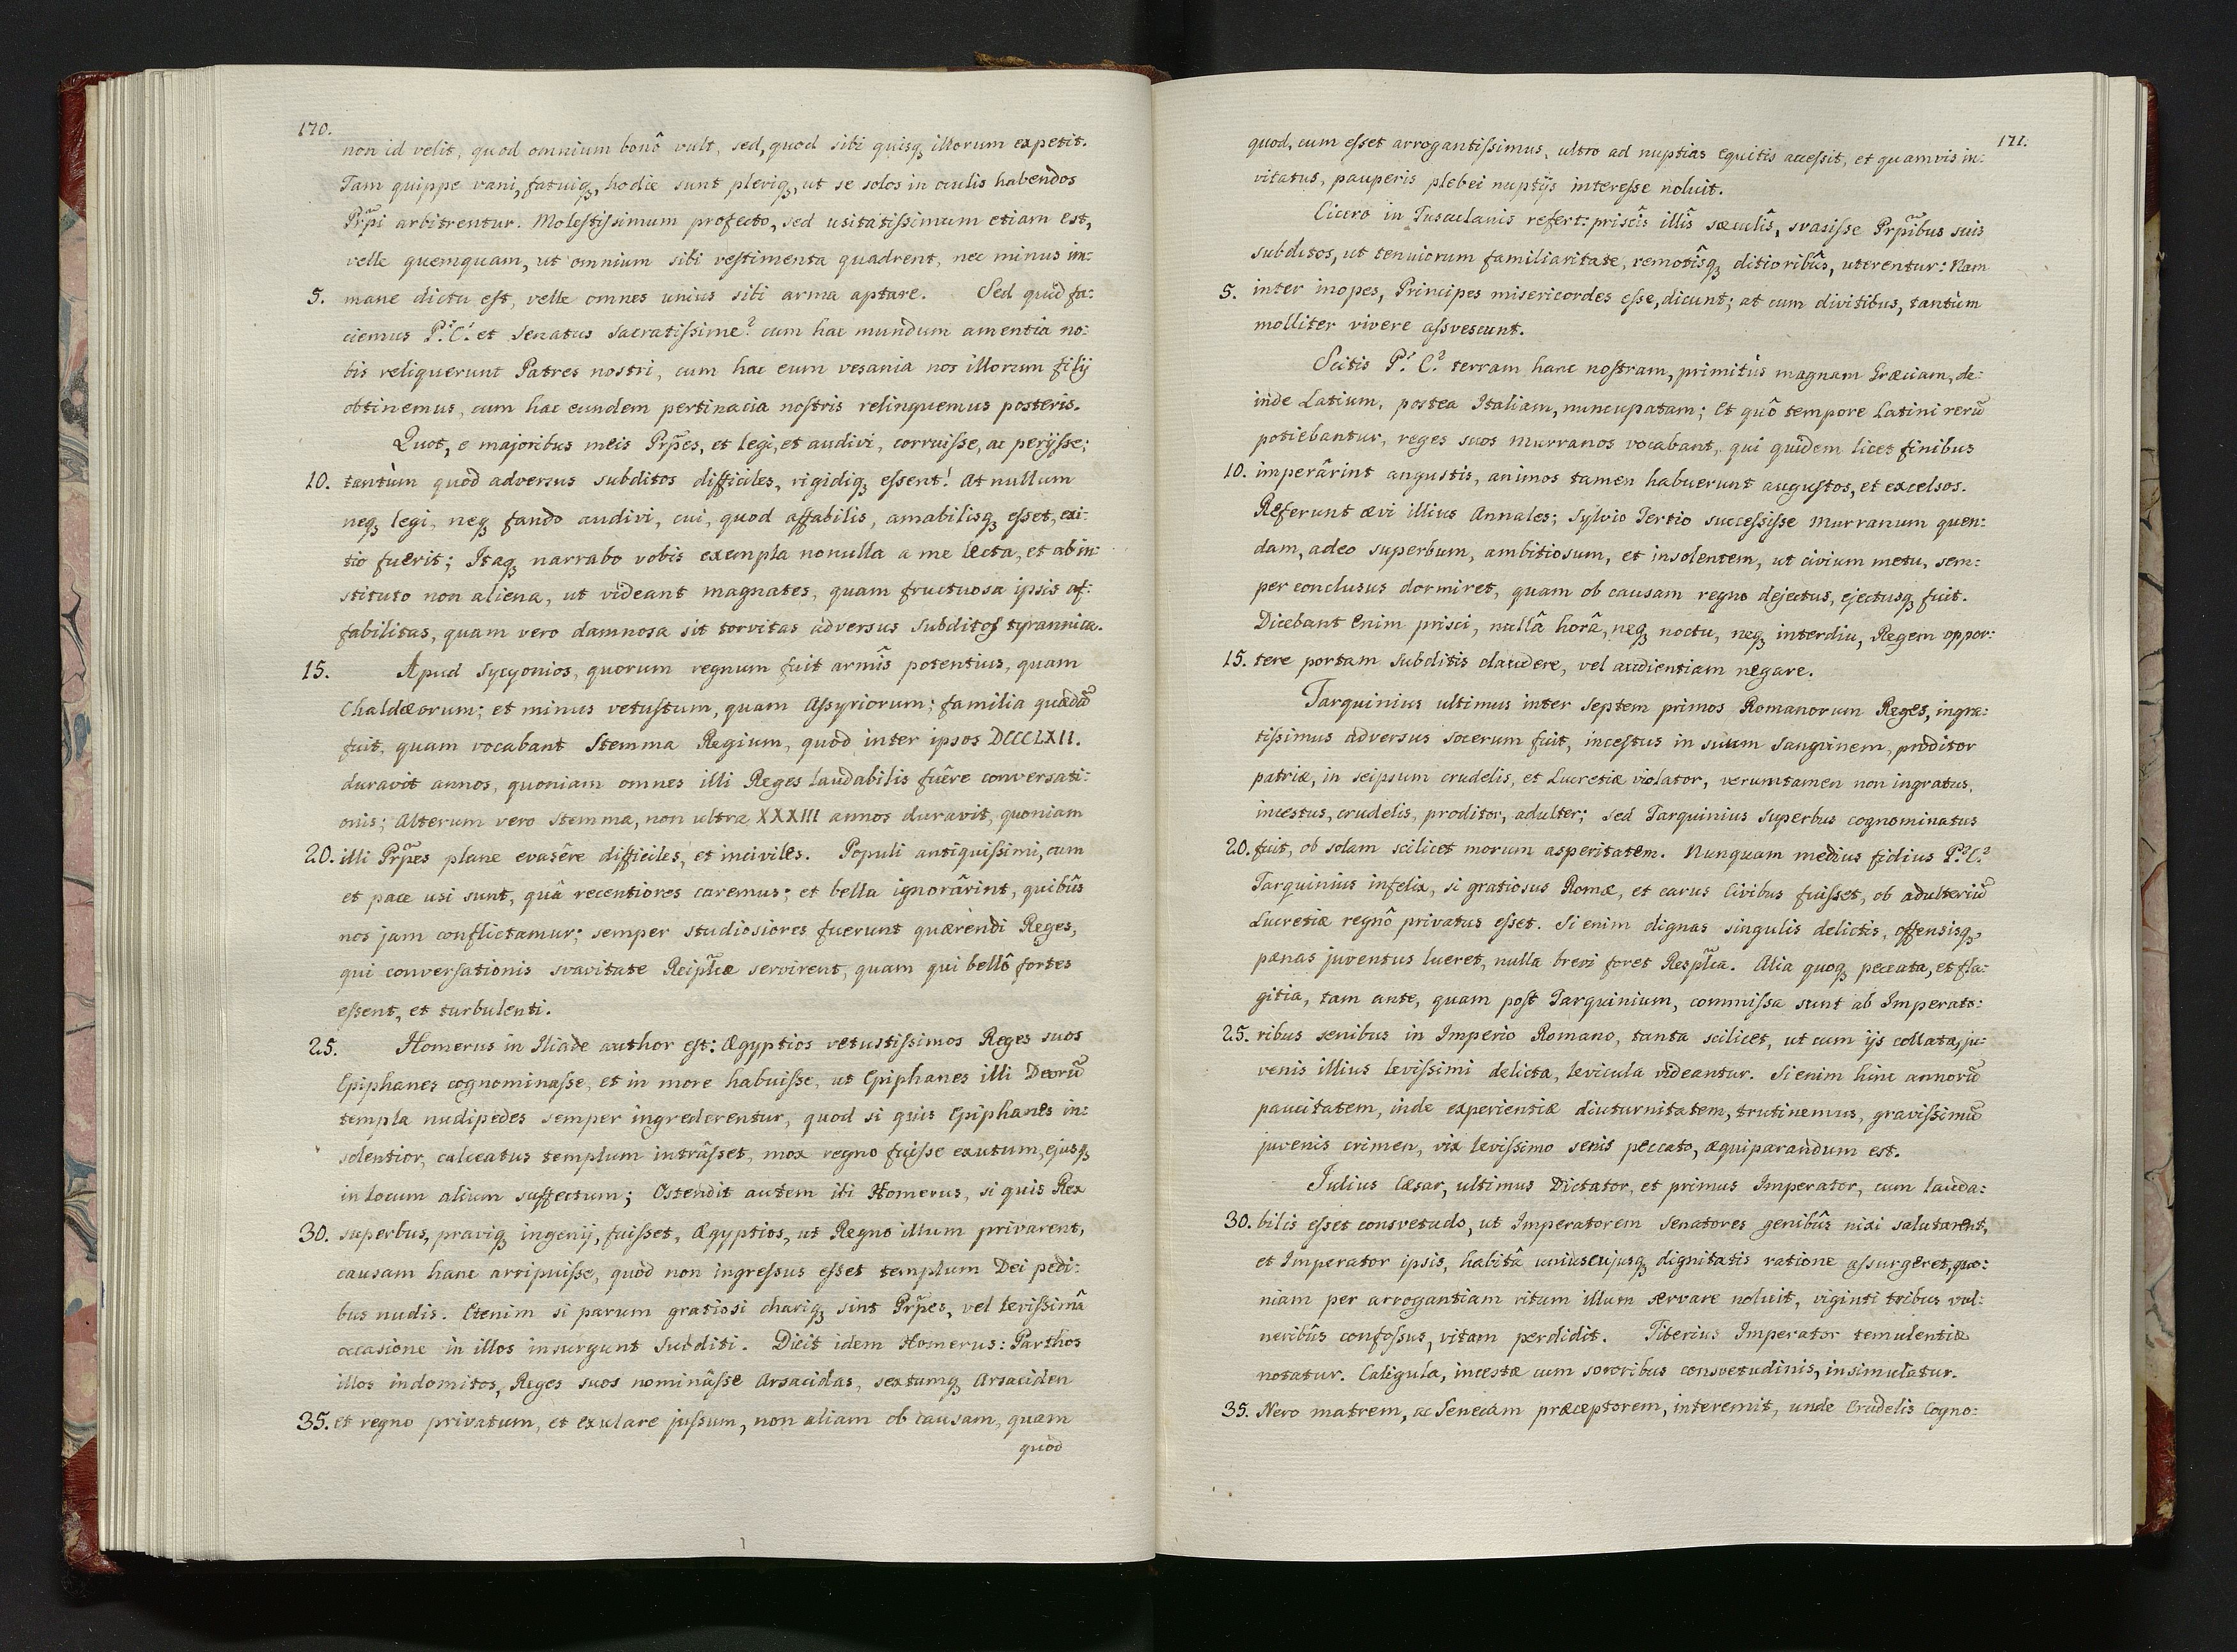 170.
non id velit, quod omnium bonô vult, sed, quod sibi quisq; illorum expetit.
Tam quippe vani, fatuiq;, hodie sunt pleriq;, ut se solos in oculis habendos
Prp̃i arbitrentur. Molestissimum profecto, sed usitatissimum etiam est,
velle quemquam, ut omnium sibi vestimenta quadrent, nec minus im:
5. mane dictu est, velle omnes unius sibi arma aptare. Sed quid fa:
ciemus P.˙ C.˙ et Senatus Sacratissime? cum hac mundum amentia no:
bis reliquerunt Patres nostri, cum hac eum vesania nos illorum filij
obtinemus, cum hac eundem pertinacia nostris relinquemus posteris.
Quot, e majoribus meis Prp̃es, et legi, et audivi, corruisse, ac perijsse;
10. tantùm quod adversus subditos difficiles, rigidiq; essent! At nullum
neq; legi, neq; fando audivi, cui, quod affabilis, amabilisq; esset, exi:
tio fuerit; Itaq; narrabo vobis exempla nonulla a me lecta, et ab in:
stituto non aliena, ut videant magnates, quam fructuosa ipsis af:
fabilitas, quam vero damnosa sit torvitas adversus subditos tyrannica.
15. Apud Sycyonios, quorum regnum fuit armîs potentius, quam
Chaldæorum; et minus vetustum, quam Assyriorum; familia quædã
fuit, quam vocabant Stemma Regium, quod inter ipsos DCCCLXII.
duravit annos, quoniam omnes illi Reges laudabilis fuêre conversati:
onis; Alterum vero stemma, non ultra XXXIII annos duravit, quoniam
20. illi Prp̃es plane evasêre difficiles, et inciviles. Populi antiquissimi, cum
et pace usi sunt, quâ recentiores caremus; et bella ignorârint, quibûs
nos jam conflictamur; semper studiosiores fuerunt quærendi Reges,
qui conversationis svavitate Reipl̃cæ servirent, quam qui bellô fortes
essent, et turbulenti.
25. Homerus in Iliade author est: Ægyptios vetustissimos Reges suos
Epiphanes cognominasse, et in more habuisse, ut Epiphanes illi Deorũ
templa nudipedes semper ingrederentur, quod si quis Epiphanes in:
solentior, calceatus templum intrâsset, mox regno fuisse exutum, ejusq;
in locum alium suffectum; Ostendit autem ibi Homerus, si quis Rex
30. superbus, praviq; ingenij, fuisset, Ægyptios, ut Regno illum privarent,
causam hanc arripuisse, quòd non ingressus esset templum Dei pedi:
bus nudis. Etenim si parum gratiosi chariq; sint Prp̃es, vel levissimâ
occasione in illos insurgunt Subditi. Dicit idem Homerus: Parthos
illos indomitos, Reges suos nominâsse Arsacidas, sextumq; Arsaciden
35. et regno privatum, et exulare jussum, non aliam ob causam, quam
quod
171.
quod, cum esset arrogantissimus, ultro ad nuptias equitis accessit, et quamvis in:
vitatus, pauperis plebei nuptijs interesse noluit.
Cicero in Tusculanis refert: priscîs illîs sæculîs, svasisse Prp̃ibus suis
subditos, ut tenuiorum familiaritate, remotîsq; ditioribûs, uterentur: Nam
5. inter inopes, Principes misericordes esse, dicunt; at cum divitibus, tantùm
molliter vivere assvescunt.
Scitis P.˙ C.² terram hanc nostram, primitùs magnam Græciam, de:
inde Latium, postea Italiam, nuncupatam; Et quô tempore Latini rerũ
potiebantur, reges suos Murranos vocabant, qui quidem licet finibus
10. imperârint angustis, animos tamen habuerunt augustos, et excelsos.
Referunt ævi illius Annales; Sylvio Tertio successisse Murranum quen:
dam, adeo superbum, ambitiosum, et insolentem, ut civium metu, sem:
per conclusus dormiret, quam ob causam regno dejectus, ejectusq; fuit.
Dicebant Enim prisci, nullâ horâ, neq; noctu, neq; interdiu, Regem oppor:
15. tere portam subditis claudere, vel audientiam negare.
Tarquinius ultimus inter Septem primos Romanorum Reges, ingra:
tissimus adversus socerum fuit, incestus in suum sanguinem, proditor
patriæ, in seipsum crudelis, et Lucretiæ violator, verumtamen non ingratus,
incestus, crudelis, proditor, adulter; sed Tarquinius Superbus cognominatus
20. fuit, ob solam scilicet morum asperitatem. Nunquam medius fidius P.² C.²
Tarquinius infelix, si gratiosus Romæ, et carus Civibus fuisset, ob adulteriũ
Lucretiæ regnô privatus esset. Si enim dignas singulis delictis, offensisq;
pænas juventus lueret, nulla brevi foret Respl̃ca. Alia quoq; peccata, et fla:
gitia, tam ante, quam post Tarquinium, commissa sunt ab Imperato:
25. ribus senibus in Imperio Romano, tanta scilicet, ut cum ijs collata, ju:
venis illius levissimi delicta, levicula videantur. Si enim hinc annorũ
paucitatem, inde experientiæ diuturnitatem, trutinemus, gravissimũ
juvenis crimen, vix levissimo senis peccato, æquiparandum est.
Julius Cæsar, ultimus Dictator, et primus Imperator, cum lauda:
30. bilis esset consvetudo, ut Imperatorem Senatores genibûs nixi salutarent,
et Imperator ipsis, habitâ uniuscujusq; dignitatis ratione assurgeret, quo:
niam per arrogantiam ritum illum servare noluit, viginti tribus vul:
neribûs confossus, vitam perdidit. Tiberius Imperator temulentiæ
notatur. Caligula, incestæ cum sororibus consvetudinis, insimulatur.
35. Nero matrem, ac Senecam præceptorem, interemit, unde Crudelis Cogno: